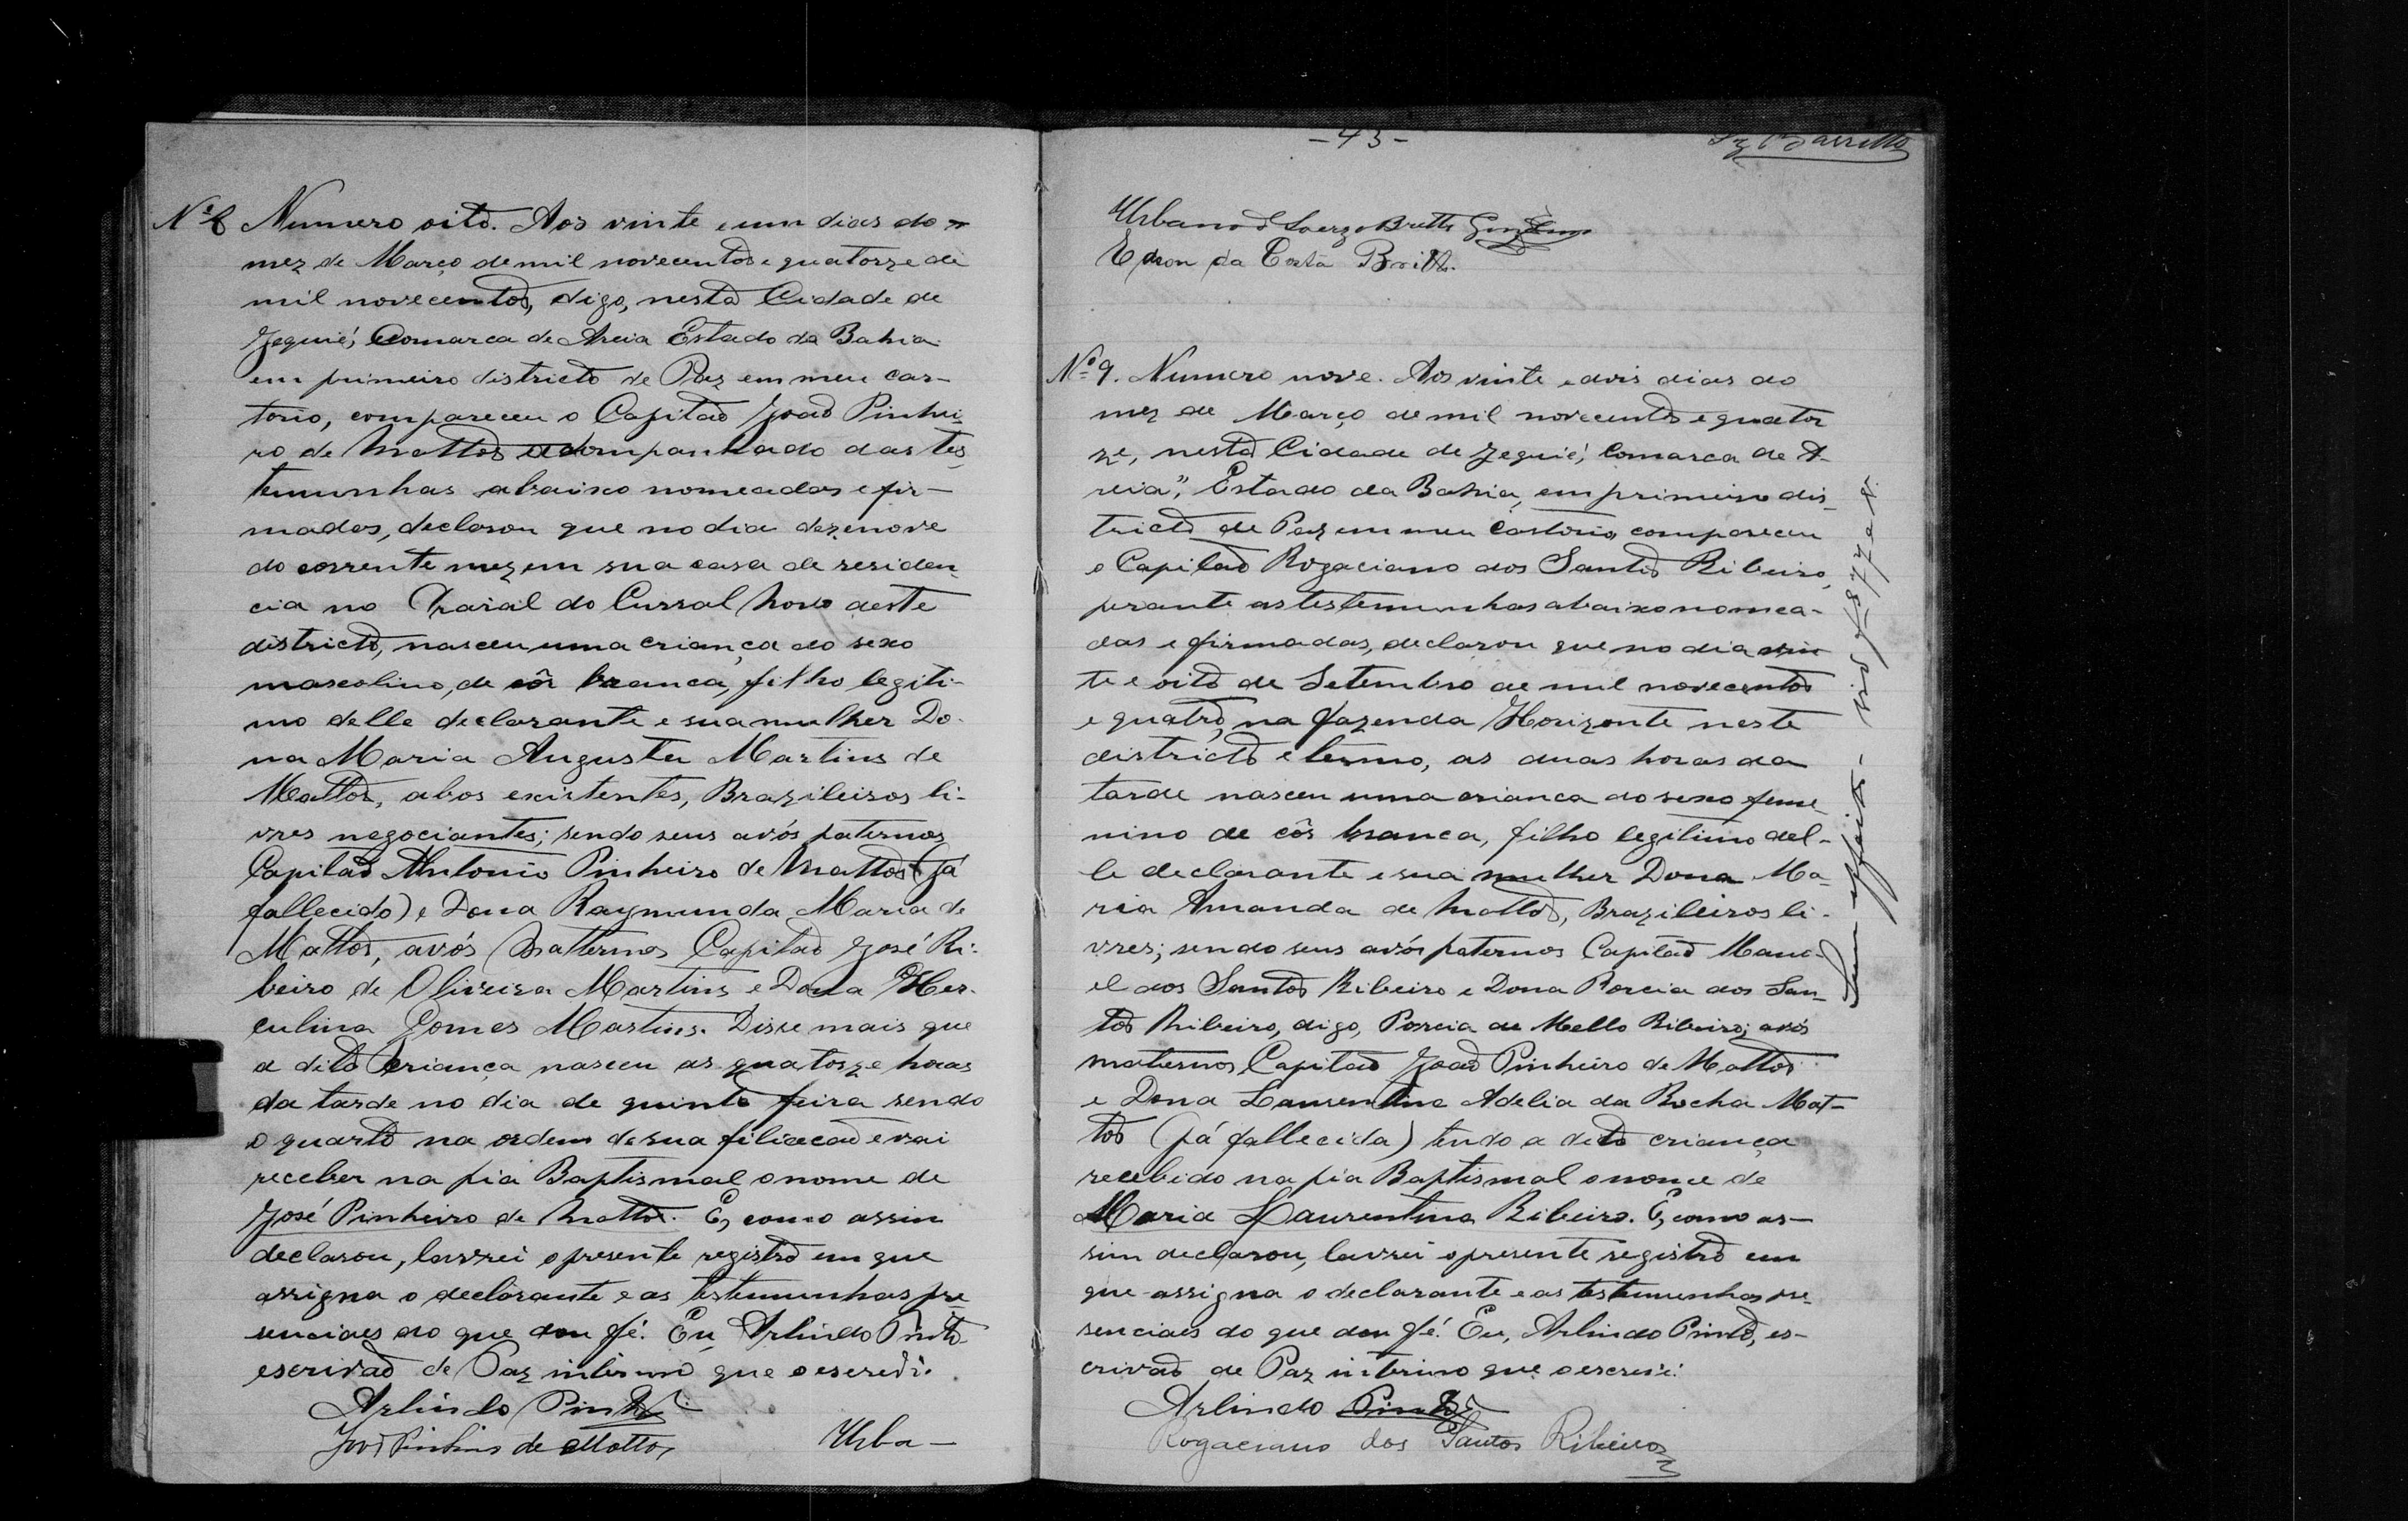 Nº 8 Numero oito. Aos vinte e um dias do
mez de Março de mil novecentos e quatorze de
mil novecentos, digo, nesta Cidade de
Jequié, Comarca de Areia Estado da Bahia
em primeiro districto de Paz em meu car-
torio, compareceu o Capitão João Pinhei-
ro de Mattos acompanhado das tes-
temunhas abaixo nomeadas e fir-
madas, declarou que no dia dezenove
do corrente mez em sua casa de residen-
cia no Arraial do Curral Novo deste
districto, nasceu uma criança do sexo
mascolino, de côr branca, filho legiti-
mo delle declarante e sua mulher Do-
na Maria Augusta Martins de
Mattos, abos existentes, Brazileiros li-
vres negociantes; sendo seus avós paternos
Capitão Antonio Pinheiro de Mattos (já
fallecido) e Dona Raymunda Maria de
Mattos, avós Matternos Capitão José Ri-
beiro de Oliveira Martins e Dona Her-
culina Gomes Martins. Disse mais que
a dita criança nasceu as quatorze horas
da tarde no dia de quinta feira sendo
o quarto na ordem de sua filiacão e vai
receber na pia Baptismal o nome de
José Pinheiro de Mattos. E, como assim
declarou, lavrei o presente registro em que
assigna o declarante e as testemunhas pre-
senciaes do que dou fé. Eu, Arlindo Pinto
escrivão de Paz interino que o escrevi.
Arlindo Pinto
João Pinheiro de Mattos
Urba-
-43-
Barretto
Urbano de Britto Gondim
Edson da Costa Britto.
Nº 9. Numero nove. Aos vinte e dois dias do
mez de Março de mil novecentos e quator
ze, nesta Cidade de Jequié, Comarca de A-
reia", Estado da Bahia, em primeiro dis-
tricto de Paz em meu Cartorio, compareceu
o Capitão Rogaciano dos Santos Ribeiro,
perante as testemunhas abaixo nomea-
das e firmadas, declarou que no dia vin
te e oito de Setembro de mil novecentos
e quatro, na fazenda Horizonte neste
districto e termo, as duas horas da
tarde nasceu uma crianca do sexo feme
nino de côr branca, filho legitimo del-
le declarante e sua mulher Dona Ma-
ria Amanda de Mattos, Brazileiros li-
vres; sendo seus avós paternos Capitão Mano-
el dos Santos Ribeiro e Dona Porcia dos San-
tos Ribeiro, digo, Porcia de Mello Ribeiro; avós
maternos, Capitão João Pinheiro de Mattos
e Dona Laurentina Adelia da Rocha Mat-
tos (já fallecida) tendo a dita criança
recebido na pia Baptismal o nome de
Maria Laurentina Ribeiro. E, como as-
sim declarou, lavrei o presente registro em
que assigna o declarante e as testemunhas pre-
senciaes do que dou fé. Eu, Arlindo Pinto, es-
crivão de Paz interino que o escrevi.
Arlindo Pinto
Rogaciano dos Santos Ribeiro
Sem effeito -